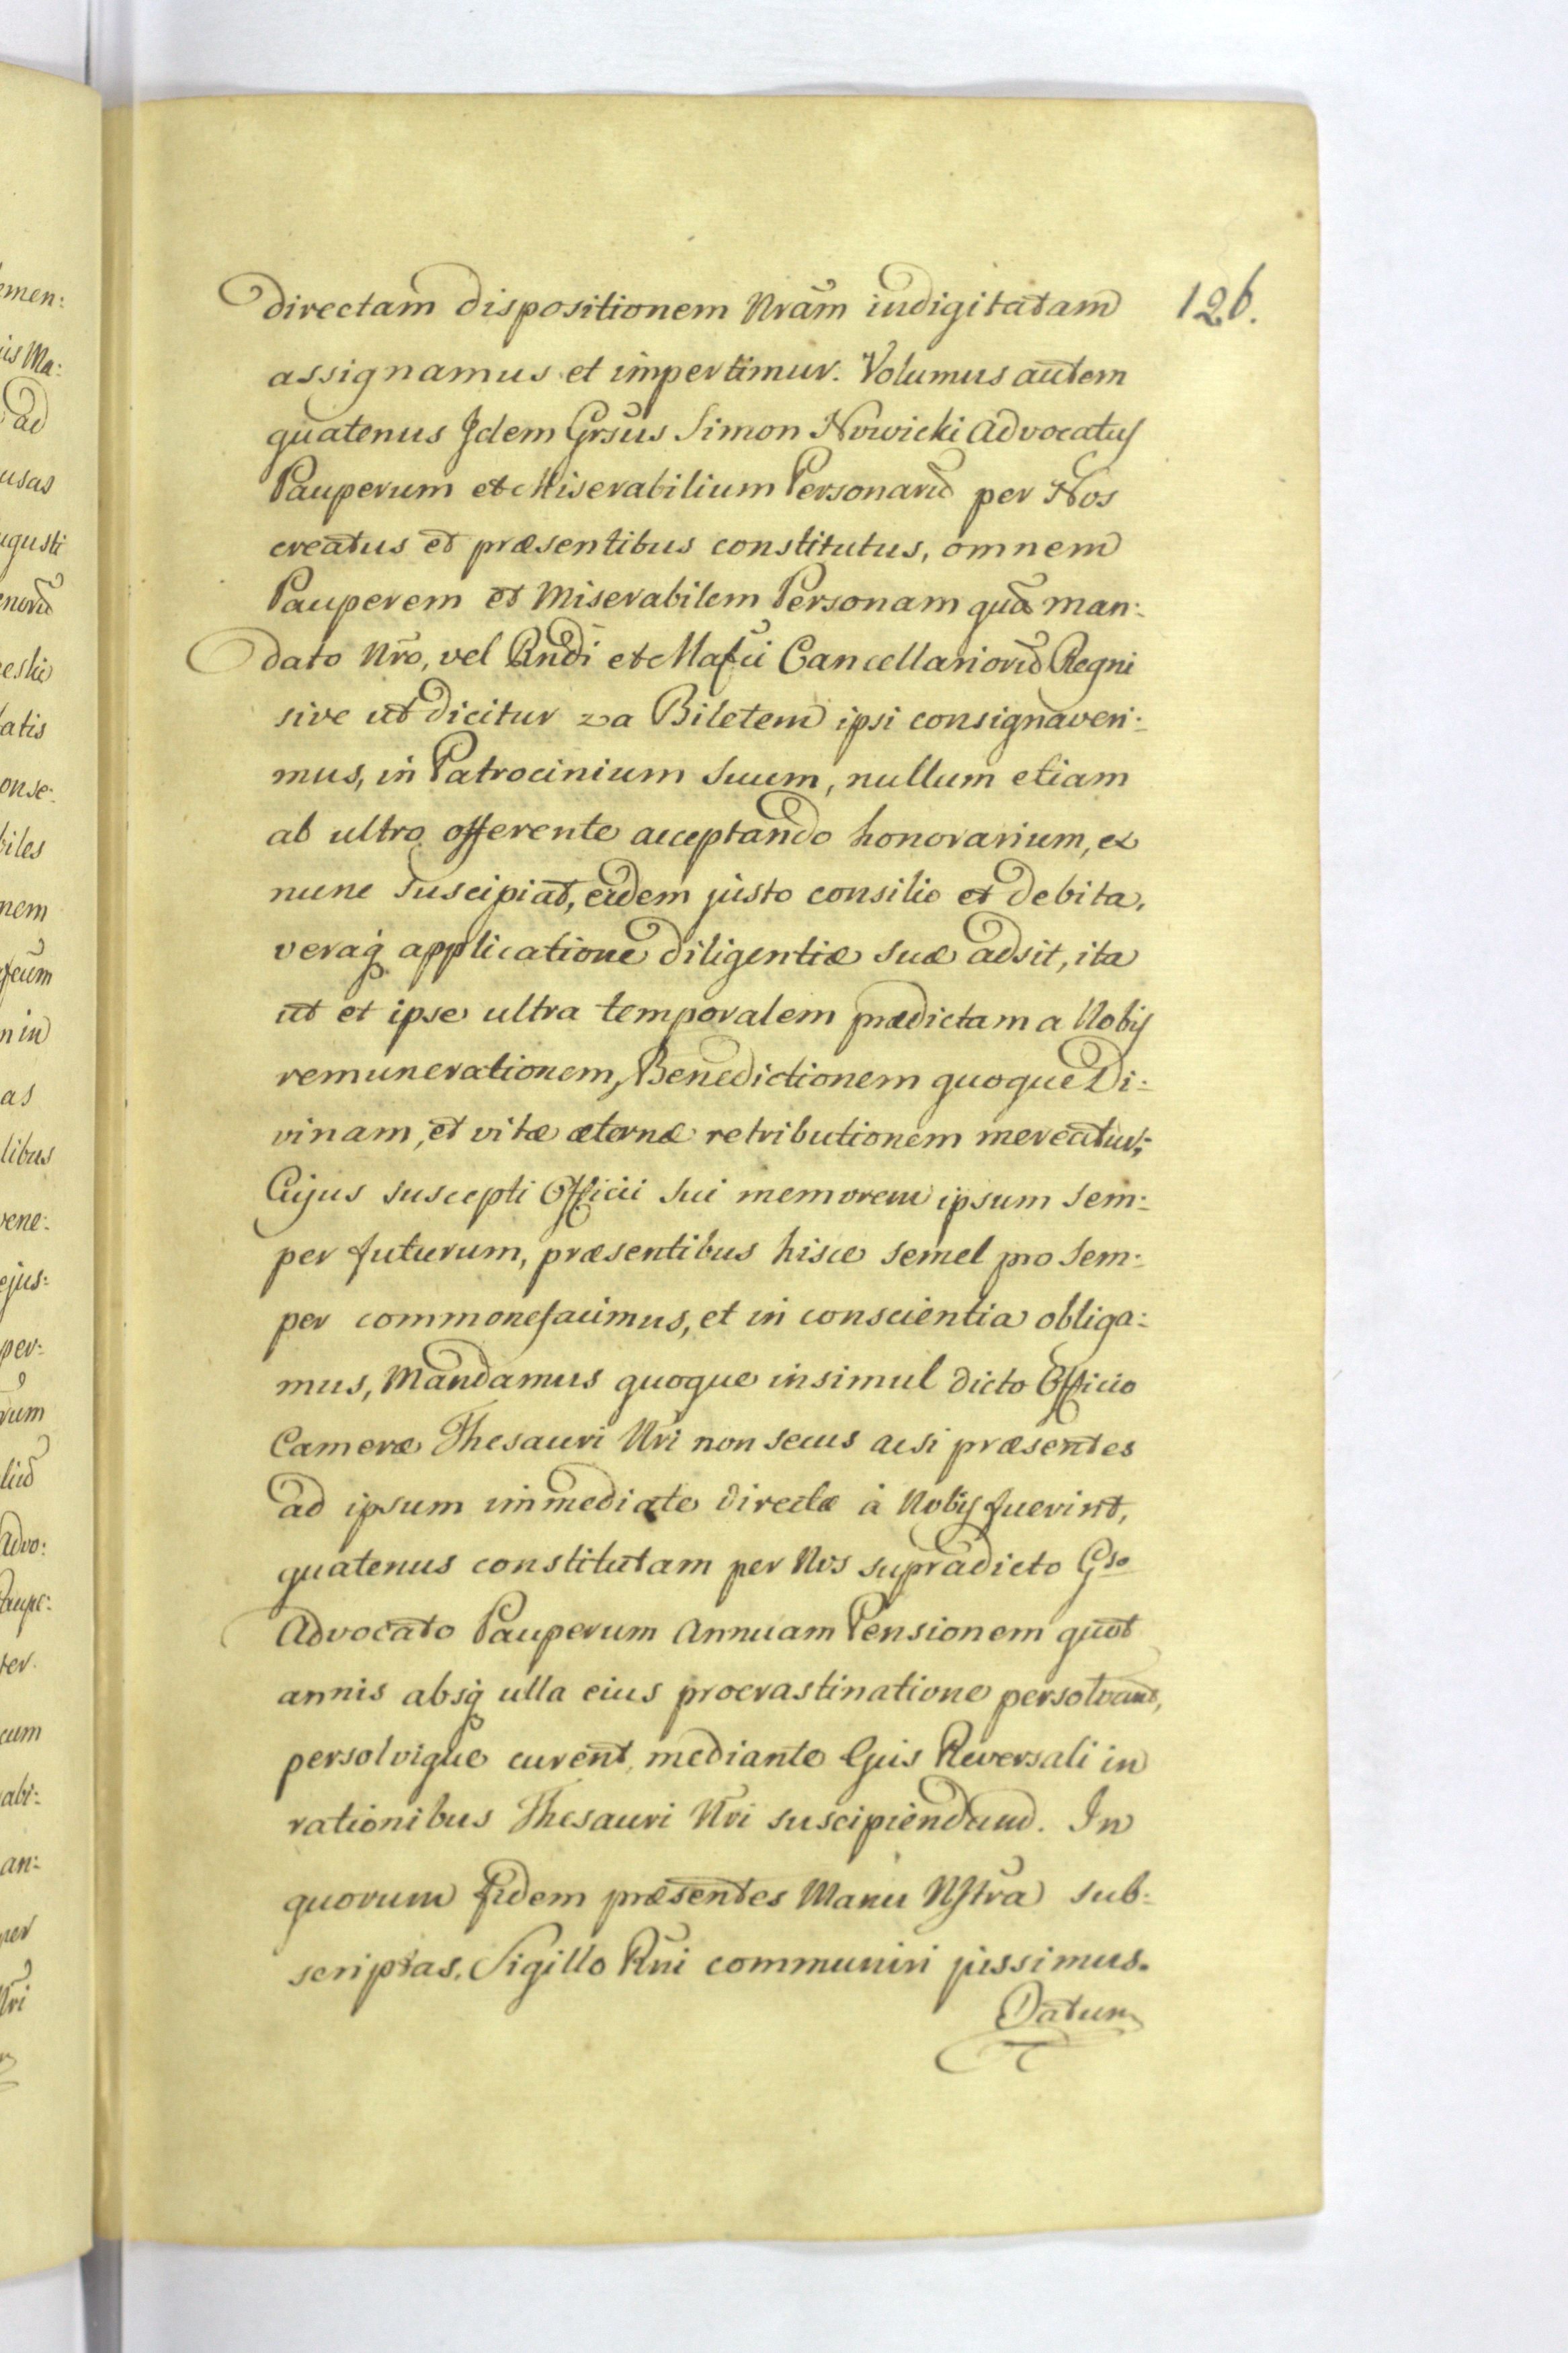 directam dispositionem Nram indigitatam
126.
assignamus et impertimur. Volumus autem
quatenus Idem Grsus Simon Nowicki Advocatus
Pauperum et Miserabilium Personarum per Nos
creatus et præsentibus constitutus, omnem
Pauperem et Miserabilem Personam quæ man:
dato Nro, vel Rndi et Mafci Cancellariorum Regni
sive ut dicitur za Biletem ipsi consignaveri:
mus, in Patrocinium suum, nullum etiam
ab ultro offerente acceptando honorarium, ex
nunc suscipiat, eidem justo consilio et debita,
veraq applicatione diligentiæ suæ adsit, ita
ut et ipse ultra temporalem prædictam a Nobis
remunerationem, Benedictionem quoque Di:
vinam, et vitæ æternæ retributionem mereatur;
Cujus suscepti Officii sui memorem ipsum sem:
per futurum, præsentibus hisce semel pro sem:
per commonefacimus, et in conscientia obliga:
mus, Mandamus quoque insimul dicto Officio
Cameræ Thesauri Nri non secus ac si præsentes
ad ipsum immediate directæ à Nobis fuerint,
quatenus constitutam per Nos supradicto Gso
Advocato Pauperum Annuam Pensionem quot
annis absq ulla eius procrastinatione persolvant,
persolvique curent, mediante Ejus Reversali in
rationibus Thesauri Nri suscipiendam. In
quorum fidem præsentes Manu Nstra sub:
scriptas, Sigillo Rni communiri jussimus.
Datum
emen:
is Ma:
ad
usas
ugusti
eskie
atis
onse:
biles
nem
n in
as
libus
vene:
ejus:
per:
rum
Advo:
Paupe:
ter.
cum
abi:
an:
per
Nri